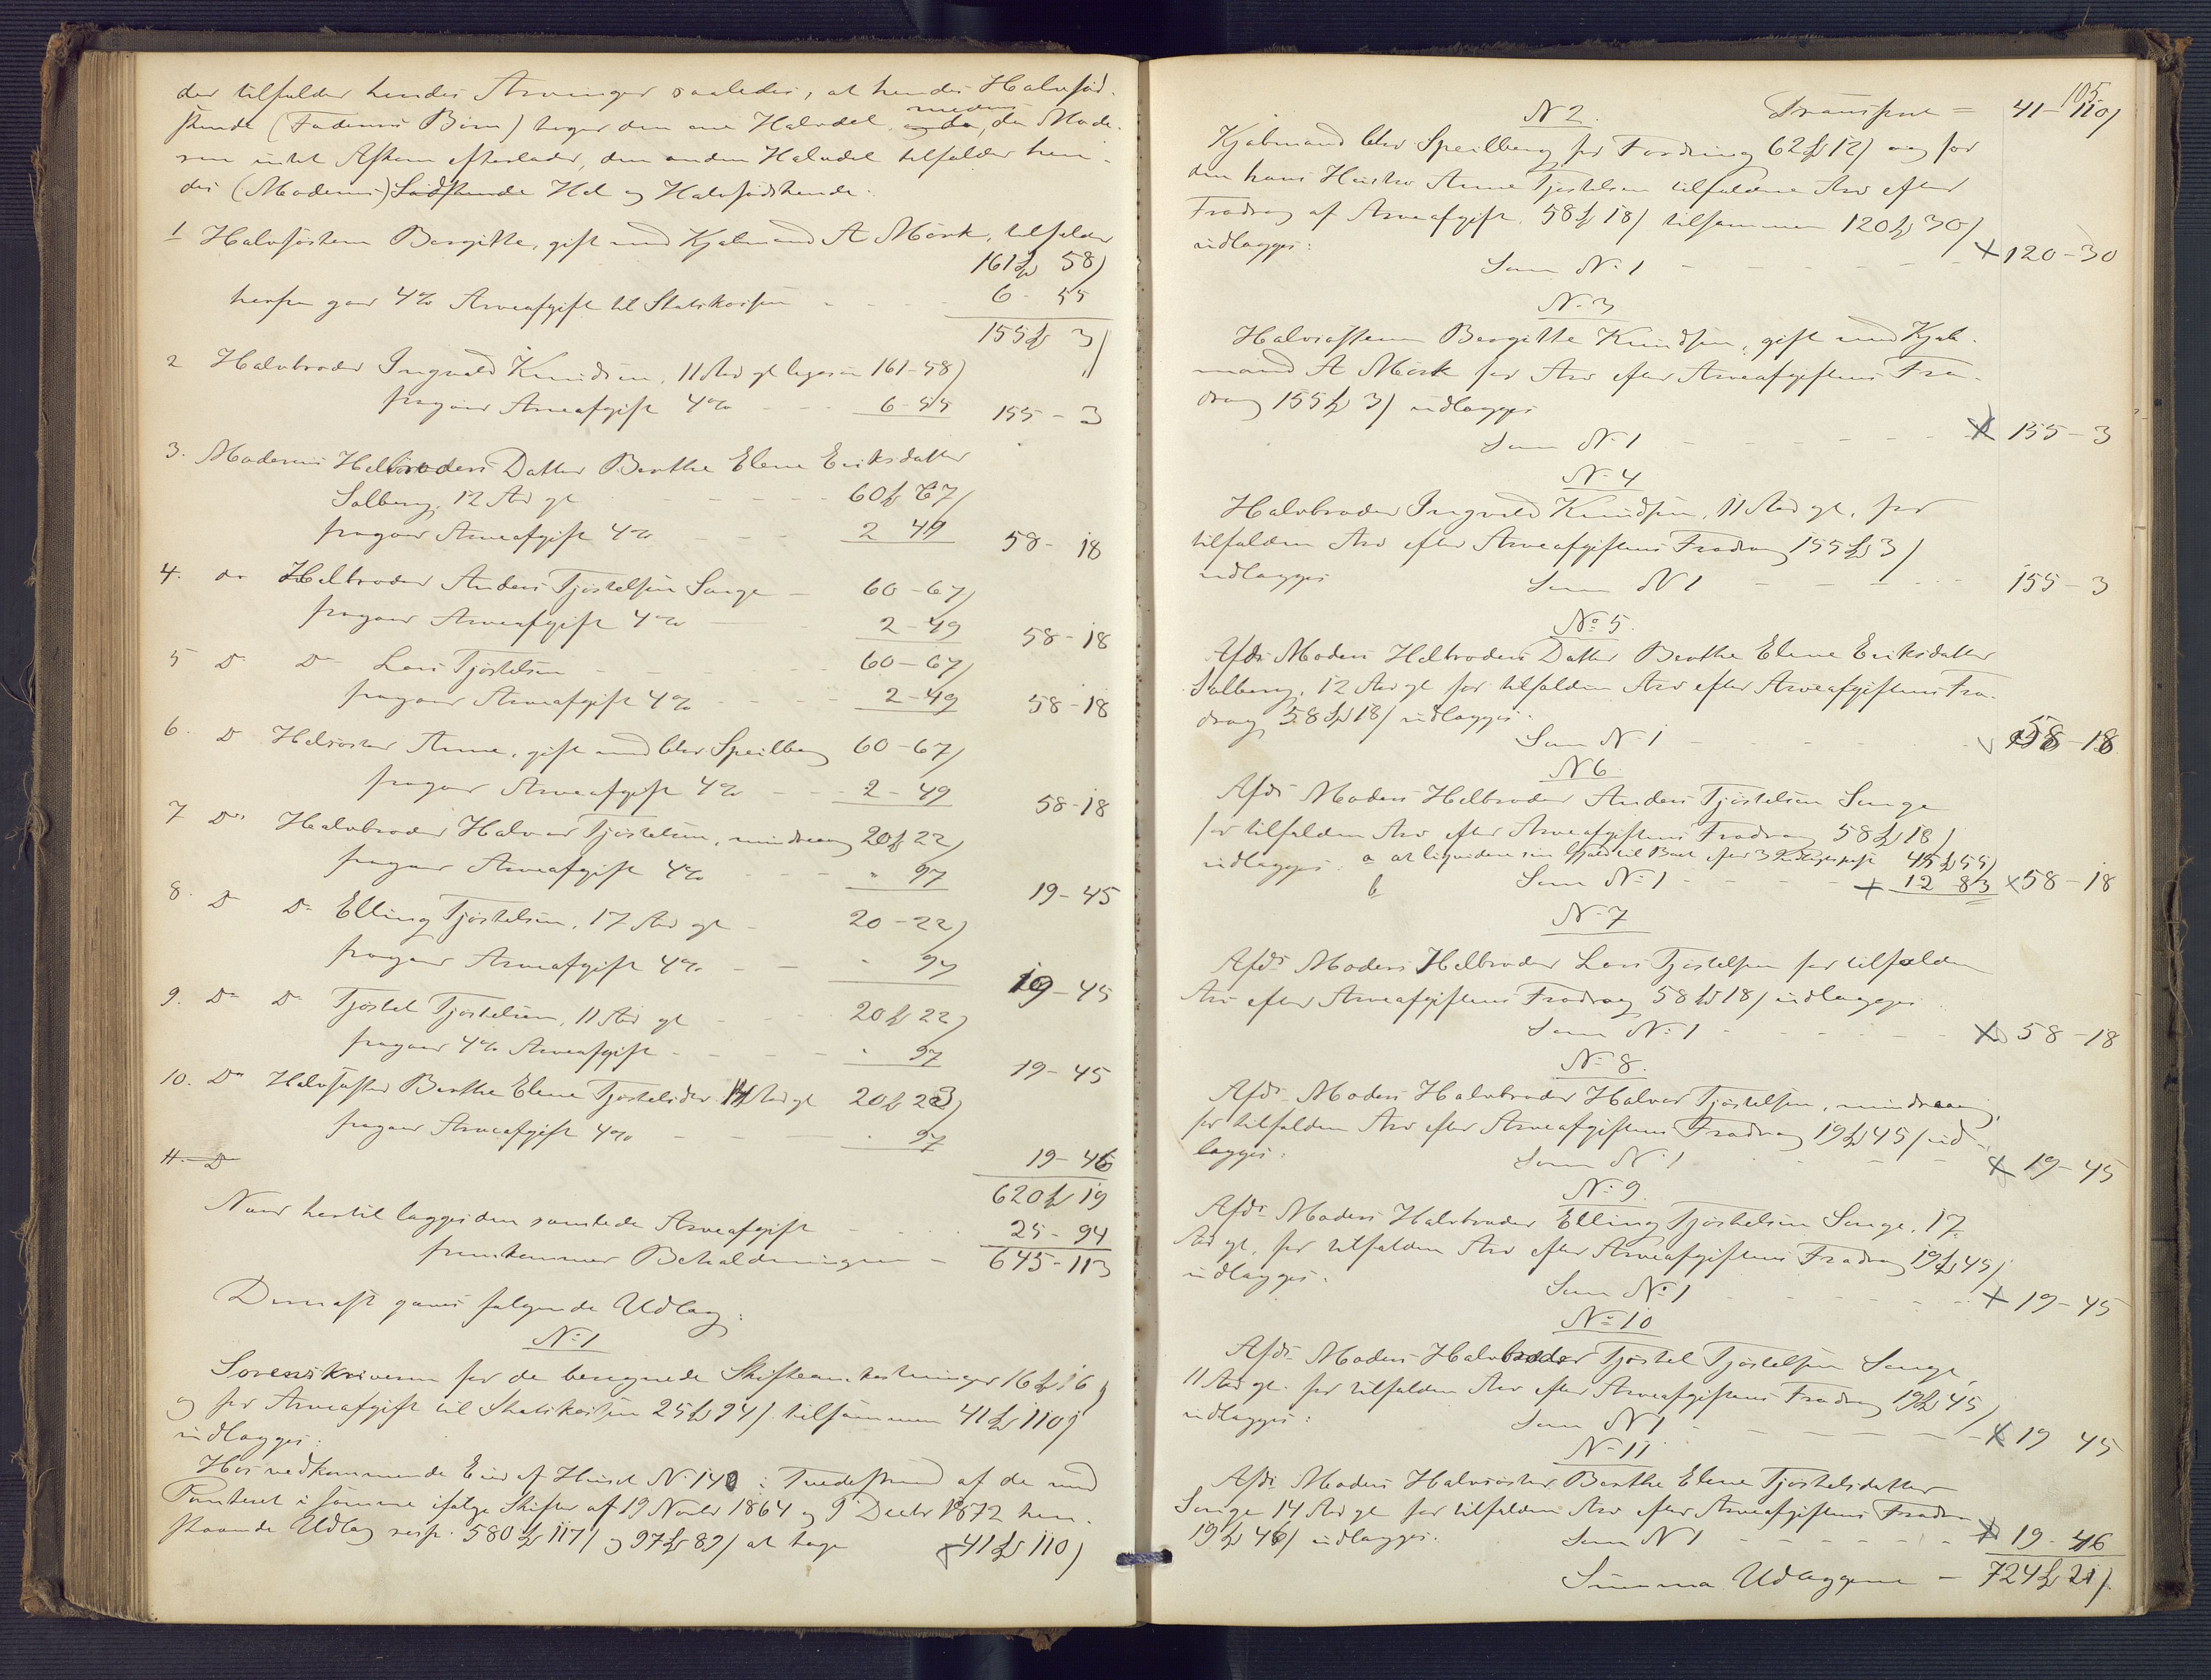 der tilfalder hendes Arvinger saaledes, at hendes Halvsød-
skende (Faderens Børn) tager den ene Halvdel, medens, da Mode-
ren intet Afkom efterlader, den anden Halvdel tilfalder hen-
des (Moderens) Sødskende Hel og Halvsødskende.
1 Halvsøsteren Bergitte, gift med Kjøbmand A Mörk, tilfalder
161 Spd 58/
herfra gaar 4% Arveafgift til Statskassen - 6 - 55
155 Spd 3/
2 Halvbroder Ingvald Knudsen, 11 Aar gl ligesaa 161-58/
fragaar Arveafgift 4% - - 6-55 155 - 3
3. Moderens Helbroders Datter Berthe Elene Eriksdatter
Solberg, 12 Aar gl - - - 60 Spd 67/
fragaar Arveafgift 4% - - - 2 49 58 - 18
4. do Helbroder Anders Tjøstelsen Songe - 60-67/
fragaar Arveafgift 4% - 2-49 58-18
5 Do Do Lars Tjøstelsen - - 60-67/
fragaar Arveafgift 4% - - 2-49 58-18
6. Do Helsøster Anne, gift med Chr Speilberg 60-67/
fragaar Arveafgift 4% - - 2-49 58-18
7 Do Halvbroder Halvor Tjøstelsen, mindreaarig 20 Spd 22/
fragaar Arveafgift 4% - - " 97 19-45
8. Do Do Elling Tjøstelsen, 17 Aar gl - 20-22/
fragaar Arveafgift 4% - - " 97 19-45
9. Do Do Tjøstel Tjøstelsen, 11 Aar gl - 20 Spd 22/
fragaar 4% Arveafgift - - - " 97 19-45
10. Do Halvsøster Berthe Elene Tjøstelsdtr 14 Aar gl 20 Spd 23/
fragaar Arveafgift 4% - - - " 97
11. D 19-46
620 Spd 19
Naar hertil lægges den samlede Arveafgift - 25-94
fremkommer Beholdningen - 645-113
Dernæst gaves følgende Udlæg:
No 1
Sorenskriveren for de beregnede Skifteomkostninger 16 Spd 16/
og for Arveafgift til Statskassen 25 Spd 94/ tilsammen 41 Spd 110/
udlægges:
Hos vedkommende Eier af Huset No 140 i Tvedestrand af de med
Panteret i samme ifølge Skifter af 19 Novbr 1864 og 9 Decbr 1872 hen-
staaende Udlæg resp. 580 Spd 117/ og 97 Spd 89/ at tage 41 Spd 110/
105
N 2. Transport = 41-110/
Kjøbmand Chr Speilberg for Fordring 62 Spd 12/ og for
den hans Hustru Anne Tjøstelsen tilfaldne Arv efter
Fradrag af Arveafgift 58 Spd 18/ tilsammen 120 Spd 30/
udlægges:
Som No 1 - - - - - 120-30
No 3
Halvsøsteren Bergitte Knudsen, gift med Kjøb-
mand A Mörk for Arv efter Arveafgiftens Fra-
drag 155 Spd 3/ udlægges
Som No 1 - - - - - 155-3
No 4
Halvbroder Ingvald Knudsen, 11 Aar gl, for
tilfalden Arv efter Arveafgiftens Fradrag 155 Spd 3/
udlægges
Som No 1 - - - - 155-3
No 5.
Afds Moders Helbroders Datter Berthe Elene Eriksdatter
Solberg, 12 Aar gl for tilfalden Arv efter Arveafgiftens Fra-
drag 58 Spd 18/ udlægges:
Som No 1 - - - - 58-18
N 6
Afds Moders Helbroder Anders Tjøstelsen Songe
for tilfalden Arv efter Arveafgiftens Fradrag 58 Spd 18/
udlægges: a at liqvidere sin Gjæld til Boet efter 45 Spd 55/
b Som No 1 - - - 12 83 58-18
N 7
Afds Moders Helbroder Lars Tjøstelsen for tilfalden
Arv efter Arveafgiftens Fradrag 58 Spd 18/ udlægges
Som No 1 - - - - 58-18
No 8.
Afds Moders Halvbroder Halvor Tjøstelsen, mindreaarig,
for tilfalden Arv efter Arveafgiftens Fradrag 19 Spd 45/ ud-
lægges:
Som No 1 - - - 19-45
No 9.
Afds Moders Halvbroder Elling Tjøstelsen Songe, 17
Aar gl, for tilfalden Arv efter Arveafgiftens Fradrag 19 Spd 45/
udlægges:
Som No 1 - - - - 19-45
No 10
Afds Moders Halvbroder Tjøstel Tjøstelsen Songe,
11 Aar gl. for tilfalden Arv efter Arveafgiftens Fradrag 19 Spd 45/
udlægges:
Som N 1 - - - - 19 45
N 11
Afds Moders Halvsøster Berthe Elene Tjøstelsdatter
Songe 14 Aar gl for tilfalden Arv efter Arveafgiftens Fradrag
19 Spd 46/ udlægges. Som N 1 - - - - 19-46
Summa Udlæggene - 724 Spd 21/.